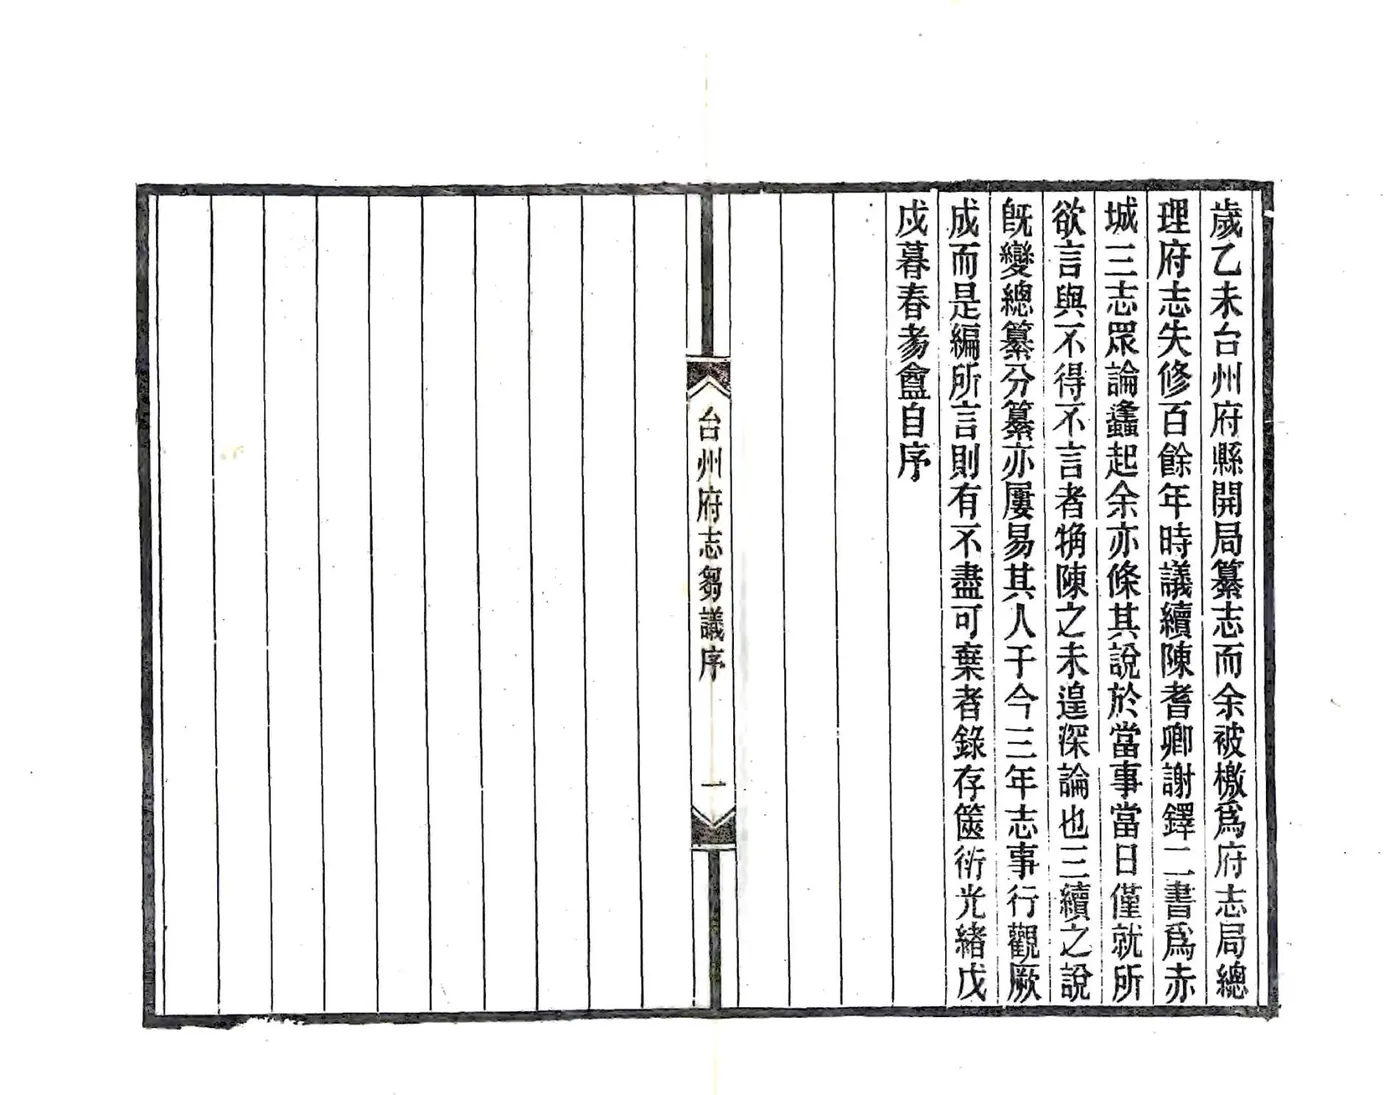 歲乙未台州府縣開局纂志而余被檄爲府志局總
理府志失修百餘年時議續陳耆卿謝鐸二書爲赤
城三志眾論蠭起余亦條其說於當事當日僅就所
欲言與不得不言者觕陳之未遑深論也三續之說
旣變總纂分纂亦屢易其人于今三年志事行觀厥
成而是編所言則有不盡可棄者錄存篋衍光緒戊
戌暮春耘盦自序
台州府志芻議序
一